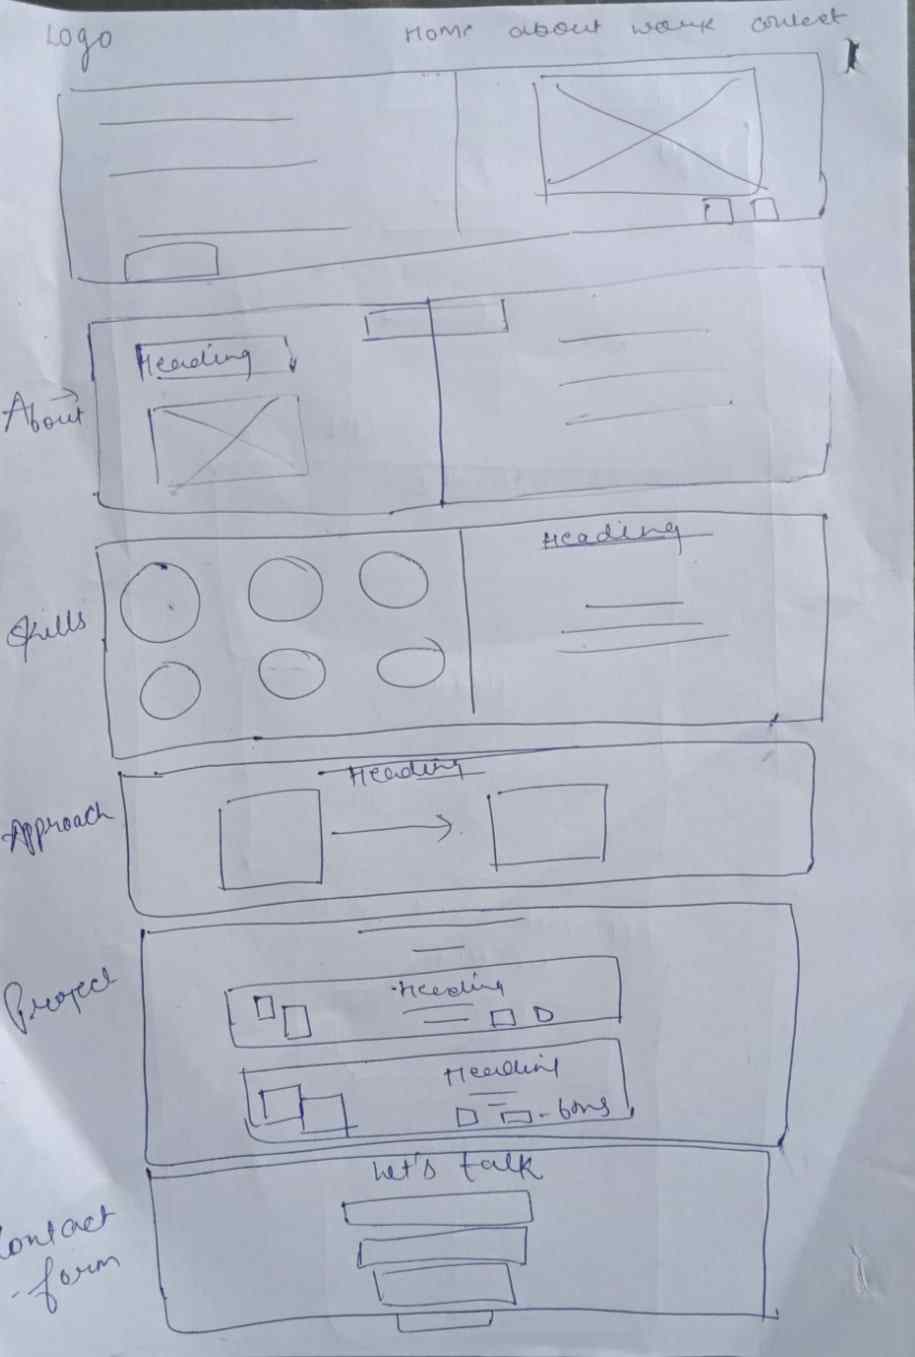 Logo
Home about work contect
About
Heading
Skills
Heading
Approach
Heading
Project
Heading
Heading
- bons
Let's talk
Contact
-form